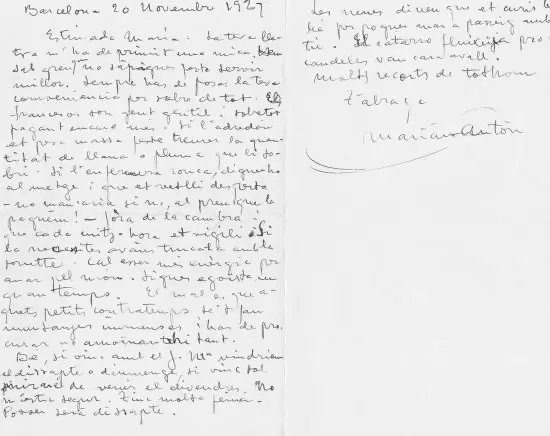 Barcelona 20 Novembre 1927
Estimada Maria. La teva lle-
tra m'ha deprimit una mica.
gran no sapigues ferte servir
millor. Sempre has de posar la teva
conveniencia per sobre de tot. Els
francesos son gent gentil i sobretot
pagant encare mes. Si l'edredon
et pesa massa feste treurer la quan-
titat de llana o ploma que li so-
bri. Si l'enfermera ronca, digueho
al metge i que et vetlli desperta
- no mancaria si no, al preu que la
paguem! - fòra de la cambra i
que cada mitja hora et vigili. Si
la necesites avans trucala amb la
sonette. Cal esser mes enèrgic per
anar pel mon. Sigues egoista un
quan temps. El mal es que a-
quets petits contratemps se't fan
muntanyes inmenses i has de pro-
curar no amoinarthi tant.
Be, si vinc amb el J. Mª vindriem
el dissapte o diumenge, si vinc sol
miraré de venir el divendres. No
n'estic segur. Tinc molta feina.
Potser será dissapte.
Les nenes diuen que et
bé per poguer anar a passeig amb
tu. El catarro
candeles van cara avall.
Molts recorts de tothom
T'abraça
Mariano Antón